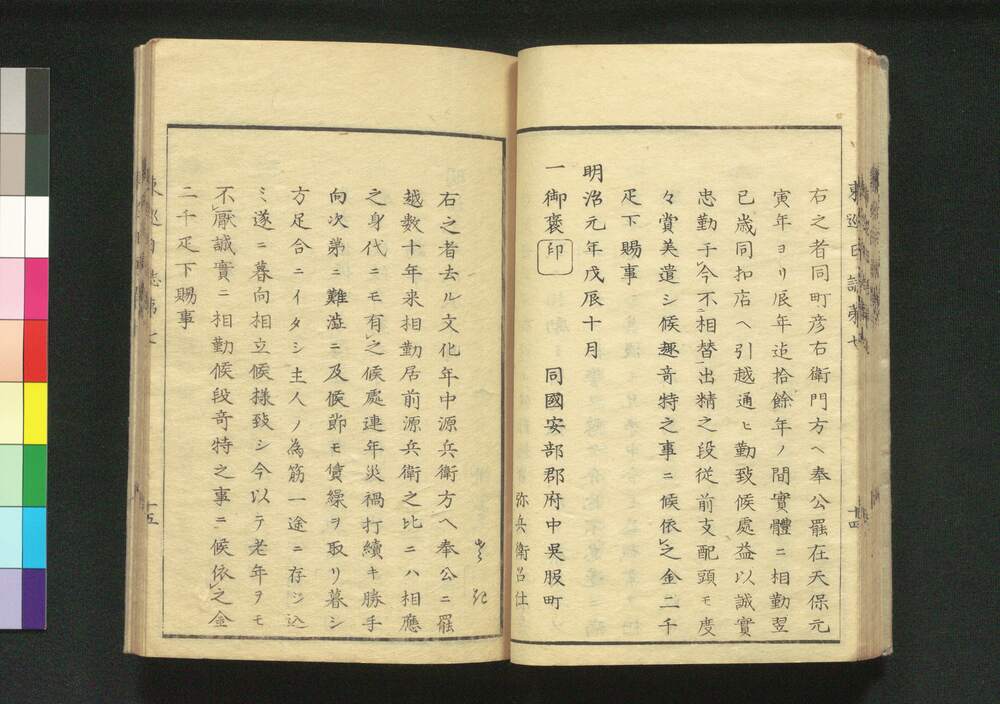 右之者同町彦右衛門方ヘ奉公罷在天保元
寅年ヨリ辰年迠拾餘年ノ間實體ニ相勤翌
巳歳同扣店ヘ引越通ヒ勤致候處益以誠實
忠勤于今不相替出精之段従前支配頭モ度
々賞美遣シ候趣竒特之事ニ候依之金二千
疋下賜事
明治元年戊辰十月
同國安部郡府中呉服町
一御褒印
弥兵衛召仕
右之者去ル文化年中源兵衛方ヘ奉公ニ罷
越数十年来相勤居前源兵衛之比ニハ相應
之身代ニモ有之候處連年災禍打續キ勝手
向次第ニ難澁ニ及候節モ償繰ヲ取リ暮シ
方足合ニイタシ主人ノ為筋一途ニ存シ込
ミ遂ニ暮向相立候様致シ今以テ老年ヲモ
不厭誠實ニ相勤候段竒特之事ニ候依之金
二千疋下賜事
東巡日誌第七
十四
十五